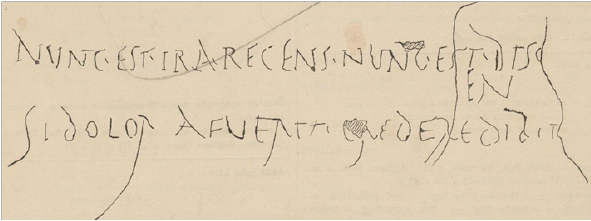 NUNC·EST·IRA RECENS·NUNC·EST·DISC
EN
SI DOLOR AFUERIT CREDE REDIBIT